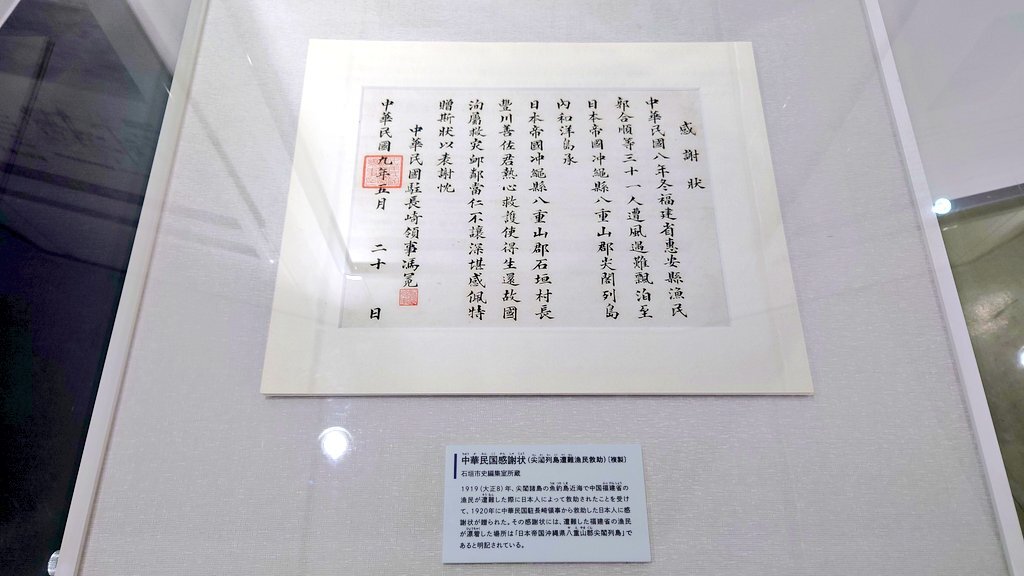 感謝狀
中華民國八年冬福建省惠安縣漁民
郭合順等三十一人遭風遇難飄泊至
日本帝國冲繩縣八重山郡尖閣列島
內和洋島承
日本帝國冲繩縣八重山郡石垣村長
豐川善佐君熱心救護使得生還故國
洵屬救災卹鄰當仁不讓深堪感佩特
贈斯狀以表謝忱
中華民國駐長崎領事馮冕
中華民國九年五月二十日
中華民国感謝状(尖閣列島遭難漁民救助)[複製]
石垣市史編集室所蔵
1919(大正8)年、尖閣諸島の魚釣島近海で中国福建省の
漁民が遭難した際に日本人によって救助されたことを受け
て、1920年に中華民国駐長崎領事から救助した日本人に感
謝状が贈られた。その感謝状には、遭難した福建省の漁民
が漂着した場所は「日本帝国沖縄県八重山郡尖閣列島」で
あると明記されている。